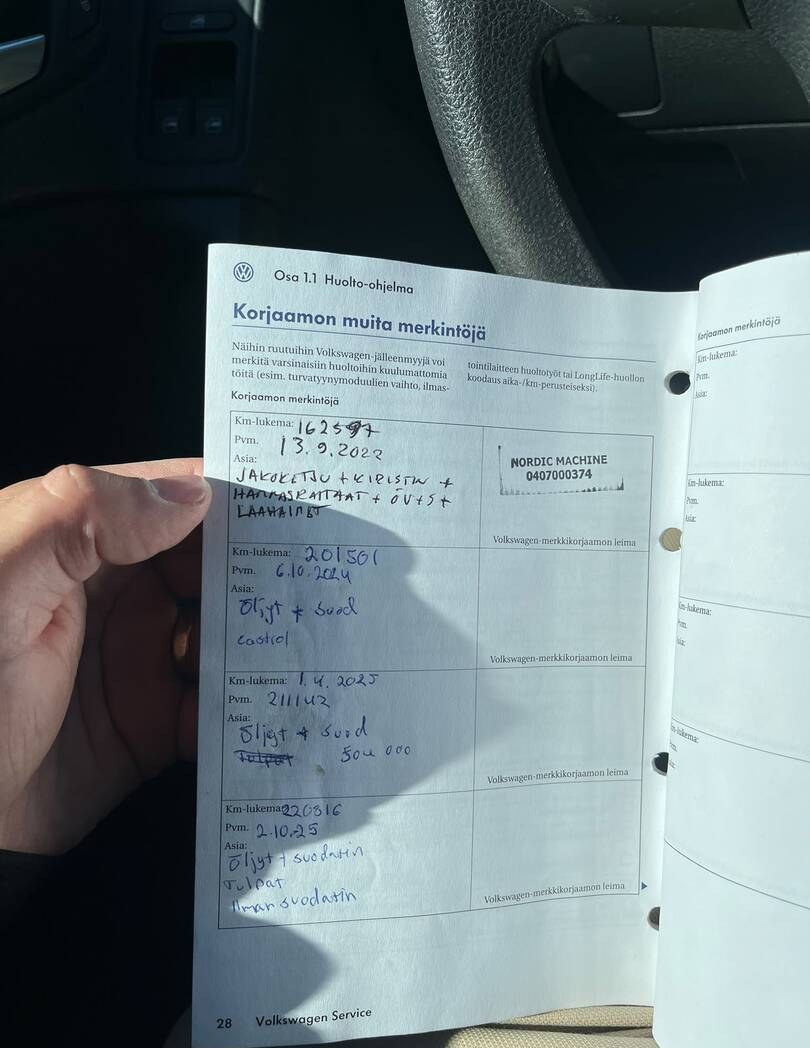 Osa 1.1 Huolto-ohjelma
Korjaamon muita merkintöjä
Näihin ruutuihin Volkswagen-jälleenmyyjä voi
merkitä varsinaisiin huoltoihin kuulumattomia
töitä (esim. turvatyynymoduulien vaihto, ilmas-
tointilaitteen huoltotyöt tai LongLife-huollon
koodaus aika-/km-perusteiseksi).
Korjaamon merkintöjä
Km-lukema: 162597
Pvm. 13.9.2022
Asia:
JAKOKETJU + KIRISTIN +
HAMMASRATTAAT + ÖV+S+
LAAHAIMET
NORDIC MACHINE
0407000374
Volkswagen-merkkikorjaamon leima
Km-lukema: 201501
Pvm. 6.10.2024
Asia:
Öljyt + suod
castrol
Volkswagen-merkkikorjaamon leima
Km-lukema: 1.4.2025
Pvm. 211142
Asia:
Öljyt + suod
Tulpat 504 000
Volkswagen-merkkikorjaamon leima
Km-lukema: 220816
Pvm. 2.10.25
Asia:
Öljyt + suodatin
Tulpat
Ilmansuodatin
Volkswagen-merkkikorjaamon leima
28 Volkswagen Service
Korjaamon merkintöjä
Km-lukema:
Pvm.
Asia:
Km-lukema:
Pvm.
Asia: